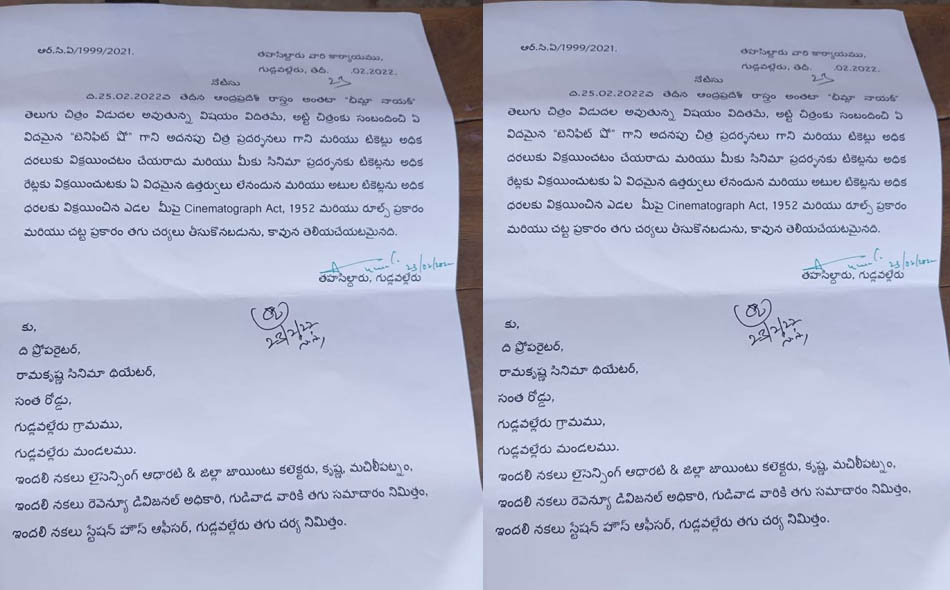 ఆర్.సి.ఏ/1999/2021.
తహసిల్దారు వారి కార్యాయము,
గుడ్లవల్లేరు, తేది. 23 .02.2022.
నోటీసు
ది.25.02.2022వ తేదిన ఆంధ్రప్రదేశ్ రాష్ట్రం అంతటా "భీమ్లా నాయక్"
తెలుగు చిత్రం విడుదల అవుతున్న విషయం విదితమే, అట్టి చిత్రంకు సంబందించి ఏ
విదమైన "బెనిఫిట్ షో" గాని అదనపు చిత్ర ప్రదర్శనలు గాని మరియు టికెట్లు అధిక
దరలుకు విక్రయించటం చేయరాదు మరియు మీకు సినిమా ప్రదర్శనకు టికెట్లను అధిక
రేట్లకు విక్రయించుటకు ఏ విధమైన ఉత్తర్వులు లేనందున మరియు అటుల టికెట్లను అధిక
ధరలకు విక్రయించిన ఎడల మీపై Cinematograph Act, 1952 మరియు రూల్స్ ప్రకారం
మరియు చట్ట ప్రకారం తగు చర్యలు తీసుకొనబడును, కావున తెలియచేయటమైనది.
23/02/2022
తహసిల్దారు, గుడ్లవల్లేరు
23/2/22
కు,
ది ప్రోపరైటర్,
రామకృష్ణ సినిమా థియేటర్,
సంత రోడ్డు,
గుడ్లవల్లేరు గ్రామము,
గుడ్లవల్లేరు మండలము.
ఇందలి నకలు లైసెన్సింగ్ ఆధారటి & జిల్లా జాయింటు కలెక్టరు, కృష్ణ, మచిలీపట్నం,
ఇందలి నకలు రెవెన్యూ డివిజనల్ అధికారి, గుడివాడ వారికి తగు సమాచారం నిమిత్తం,
ఇందలి నకలు స్టేషన్ హౌస్ ఆఫీసర్, గుడ్లవల్లేరు తగు చర్య నిమిత్తం.
ఆర్.సి.ఏ/1999/2021.
తహసిల్దారు వారి కార్యాయము,
గుడ్లవల్లేరు, తేది. 23 .02.2022.
నోటీసు
ది.25.02.2022వ తేదిన ఆంధ్రప్రదేశ్ రాష్ట్రం అంతటా "భీమ్లా నాయక్"
తెలుగు చిత్రం విడుదల అవుతున్న విషయం విదితమే, అట్టి చిత్రంకు సంబందించి ఏ
విదమైన "బెనిఫిట్ షో" గాని అదనపు చిత్ర ప్రదర్శనలు గాని మరియు టికెట్లు అధిక
దరలుకు విక్రయించటం చేయరాదు మరియు మీకు సినిమా ప్రదర్శనకు టికెట్లను అధిక
రేట్లకు విక్రయించుటకు ఏ విధమైన ఉత్తర్వులు లేనందున మరియు అటుల టికెట్లను అధిక
ధరలకు విక్రయించిన ఎడల మీపై Cinematograph Act, 1952 మరియు రూల్స్ ప్రకారం
మరియు చట్ట ప్రకారం తగు చర్యలు తీసుకొనబడును, కావున తెలియచేయటమైనది.
23/02/2022
తహసిల్దారు, గుడ్లవల్లేరు
23/2/22
కు,
ది ప్రోపరైటర్,
రామకృష్ణ సినిమా థియేటర్,
సంత రోడ్డు,
గుడ్లవల్లేరు గ్రామము,
గుడ్లవల్లేరు మండలము.
ఇందలి నకలు లైసెన్సింగ్ ఆధారటి & జిల్లా జాయింటు కలెక్టరు, కృష్ణ, మచిలీపట్నం,
ఇందలి నకలు రెవెన్యూ డివిజనల్ అధికారి, గుడివాడ వారికి తగు సమాచారం నిమిత్తం,
ఇందలి నకలు స్టేషన్ హౌస్ ఆఫీసర్, గుడ్లవల్లేరు తగు చర్య నిమిత్తం.